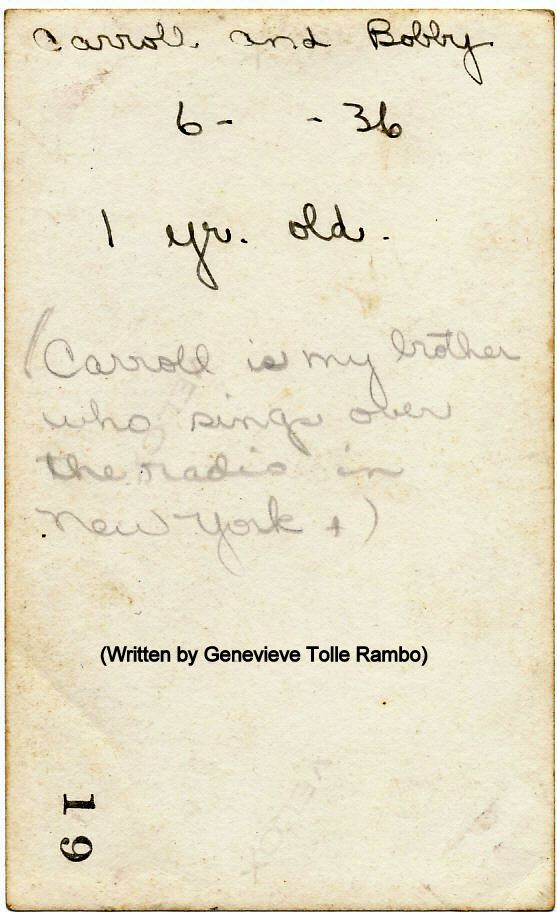 Carroll and Bobby
6-   - 36
1 yr. old.
(Carroll is my brother
who sings over
the radio in
New York + )
(Written by Genevieve Tolle Rambo)
19